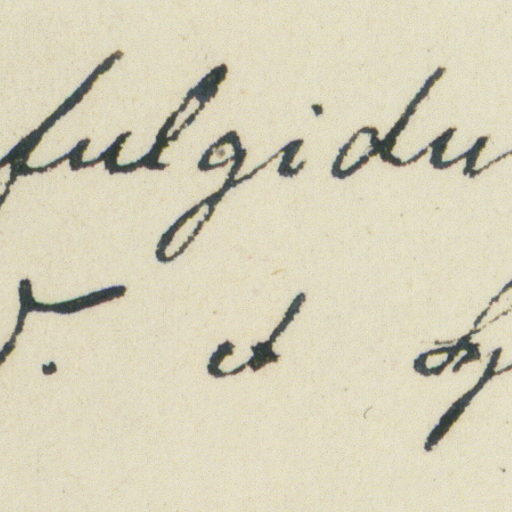 fulgidu
V. et